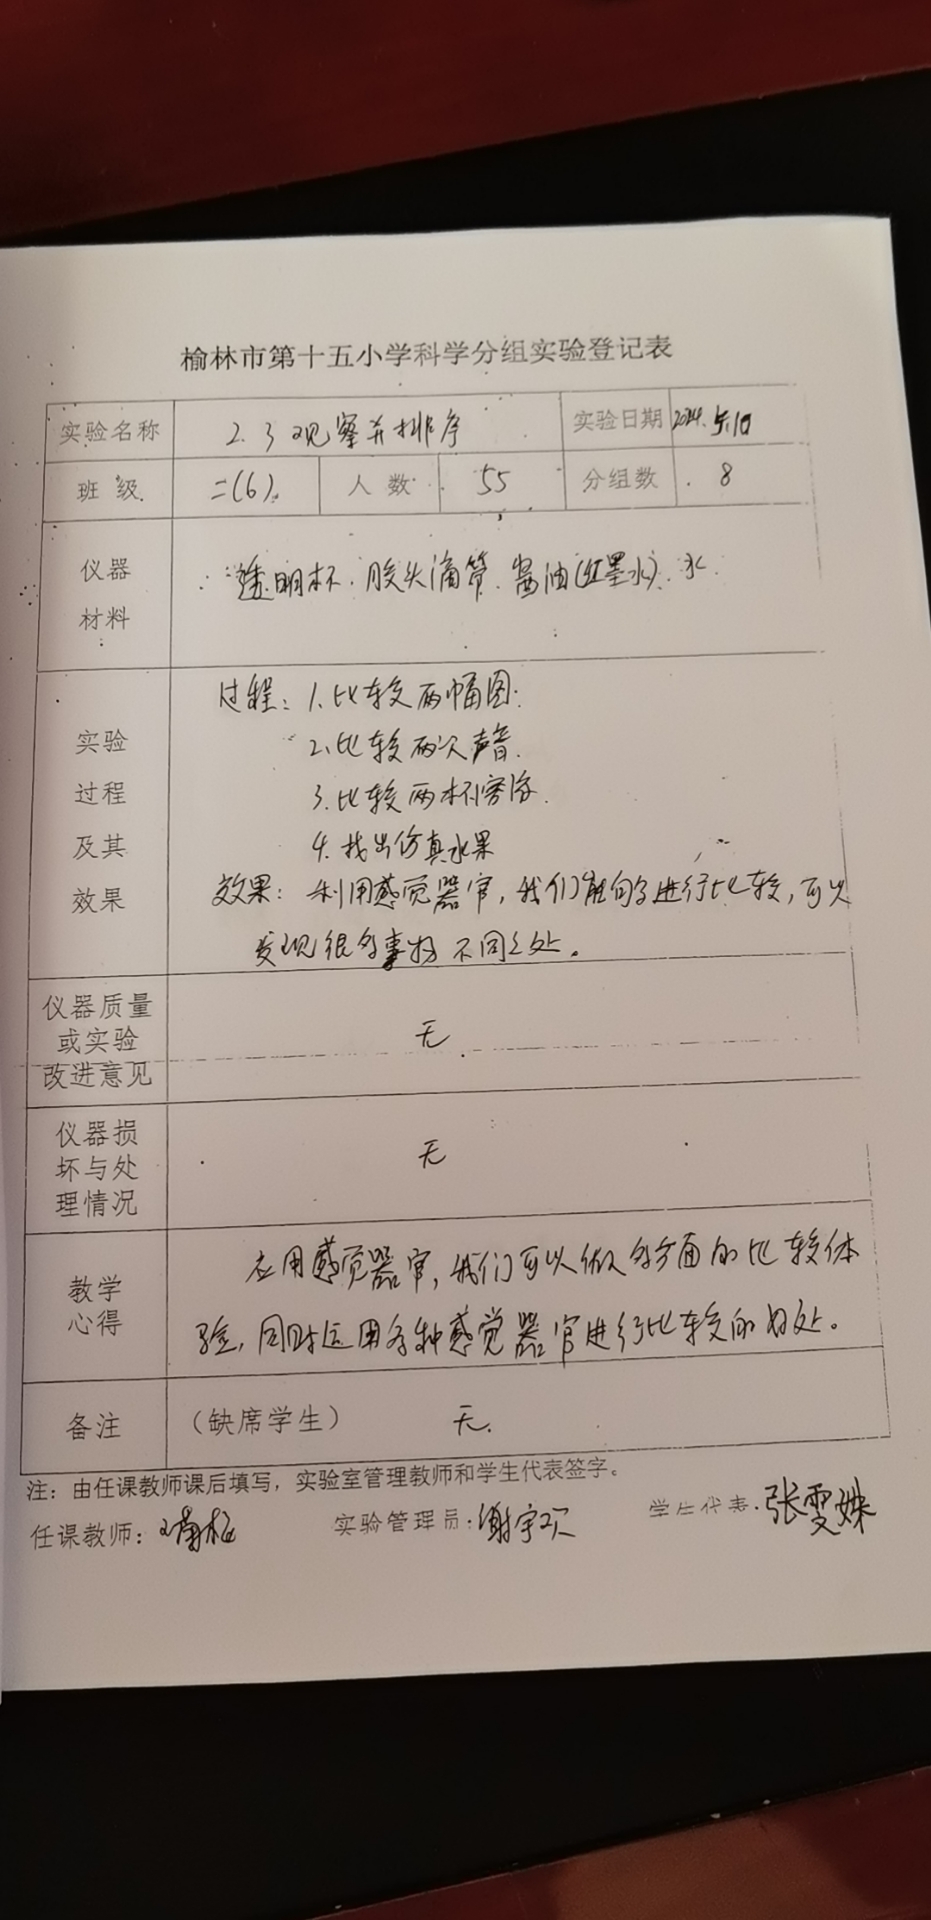 榆林市第十五小学科学分组实验登记表
实验名称 2.3观察并排序 实验日期 2024.5.10
班级 二(6) 人数 55 分组数 8
仪器
材料
透明杯、胶头滴管、酱油(红墨水)、水
实验
过程
及其
效果
过程：1.比较两幅图.
2.比较两次声音.
3.比较两杯溶液.
4.找出仿真水果
效果：利用感觉器官，我们能够进行比较，可以
发现很多事物不同之处。
仪器质量
或实验
改进意见
无
仪器损
坏与处
理情况
无
教学
心得
应用感觉器官，我们可以做多方面的比较体
验，同时运用各种感觉器官进行比较的好处。
备注 （缺席学生） 无.
注：由任课教师课后填写，实验室管理教师和学生代表签字。
任课教师： 实验管理员：谢宇 学生代表：张雯姝